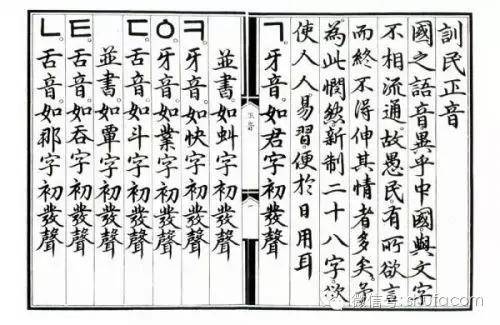 訓民正音
國之語音。異乎中國。與文字
不相流通。故愚民有所欲言
而終不得伸其情者多矣。予
為此憫然。新制二十八字。欲
使人人易習。便於日用耳
ㄱ。牙音。如君字初發聲
並書。如虯字初發聲
ㅋ。牙音。如快字初發聲
ㆁ。牙音。如業字初發聲
ㄷ。舌音。如斗字初發聲
並書。如覃字初發聲
ㅌ。舌音。如吞字初發聲
ㄴ。舌音。如那字初發聲
正音
一
微信号: shufa.com